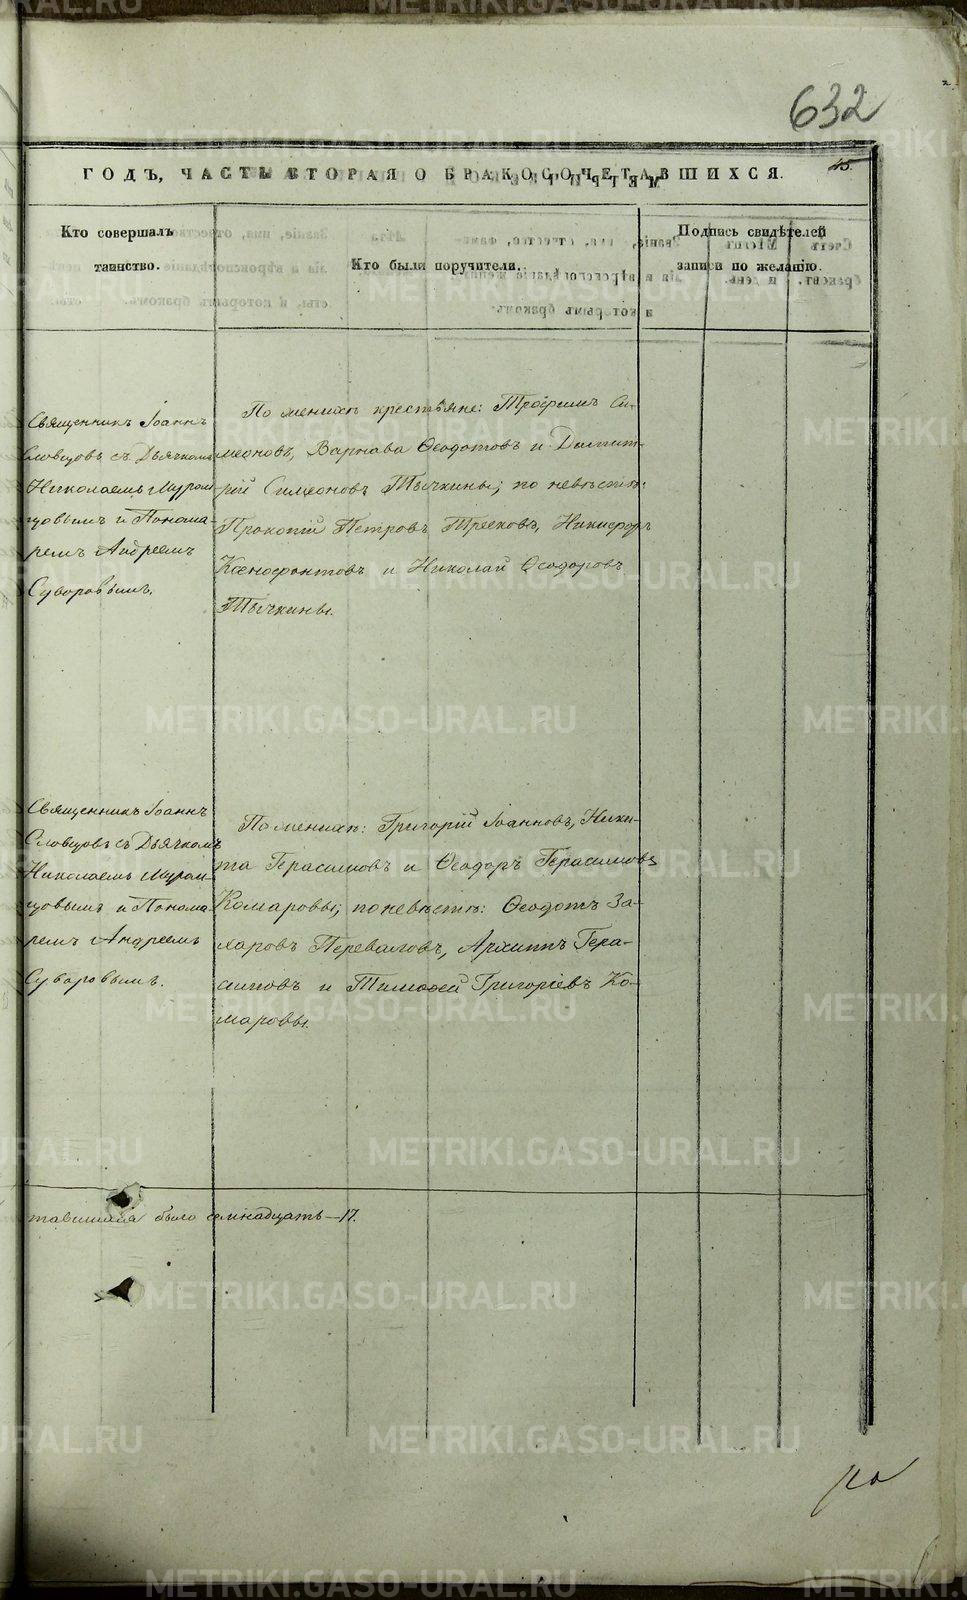 632
45.
ГОДЪ, ЧАСТЬ ВТОРАЯ О БРАКОСОЧЕТАВШИХСЯ.
Кто совершалъ
таинство.
Кто были поручители.
Подпись свидѣтелей
записи по желанію.
Священникъ Іоаннъ
Словцовъ съ Дьячкомъ
Николаемъ Муром-
цовымъ и Понома-
ремъ Андреемъ
Суворовымъ.
По женихѣ крестьяне: Трофимъ Си-
меоновъ, Варнава Ѳеодотовъ и Димит-
рій Симеоновъ Тычкины; по невѣстѣ:
Прокопій Петровъ Трясковъ, Никифоръ
Ксенофонтовъ и Николай Ѳеодоровъ
Тычкины.
Священникъ Іоаннъ
Словцовъ съ Дьячкомъ
Николаемъ Муром-
цовымъ и Понома-
ремъ Андреемъ
Суворовымъ.
По женихѣ: Григорій Іоанновъ, Ники-
та Герасимовъ и Ѳеодоръ Герасимовъ
Комаровы; по невѣстѣ: Ѳеодотъ За-
харовъ Переваловъ, Архиппъ Гера-
симовъ и Тимоѳей Григоріевъ Ко-
маровы.
тавшихся было семнадцать—17.
METRIKI.GASO-URAL.RU